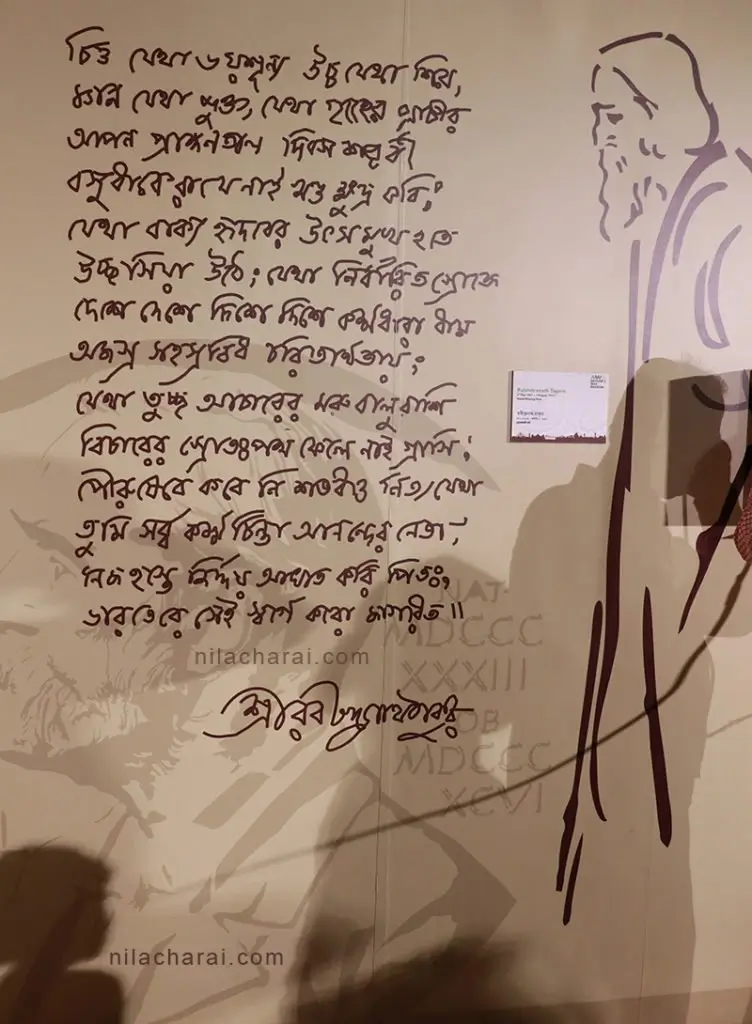 চিত্ত যেথা ভয়শূন্য উচ্চ যেথা শির,
জ্ঞান যেথা মুক্ত, যেথা গৃহের প্রাচীর
আপন প্রাঙ্গনতলে দিবস শর্ব্বরী
বসুধারে রাখে নাই খণ্ড ক্ষুদ্র করি;
যেথা বাক্য হৃদয়ের উৎসমুখ হতে
উচ্ছ্বসিয়া উঠে; যেথা নির্ব্বারিত স্রোতে
দেশে দেশে দিশে দিশে কর্ম্মধারা ধায়
অজস্র সহস্রবিধ চরিতার্থতায়;
যেথা তুচ্ছ আচারের মরু বালুরাশি
বিচারের স্রোতঃপথ ফেলে নাই গ্রাসি;
পৌরুষেরে করে নি শতধা নিত্য যেথা
তুমি সর্ব্ব কর্ম্ম চিন্তা আনন্দের নেতা;
নিজ হস্তে নির্দ্দয় আঘাত করি পিতঃ,
ভারতেরে সেই স্বর্গে করো জাগরিত॥
nilacharai.com
শ্রীরবীন্দ্রনাথ ঠাকুর
Rabindranath Tagore
NAT-
MDCCC
XXXIII
OB
MDCCC
XCVI
nilacharai.com